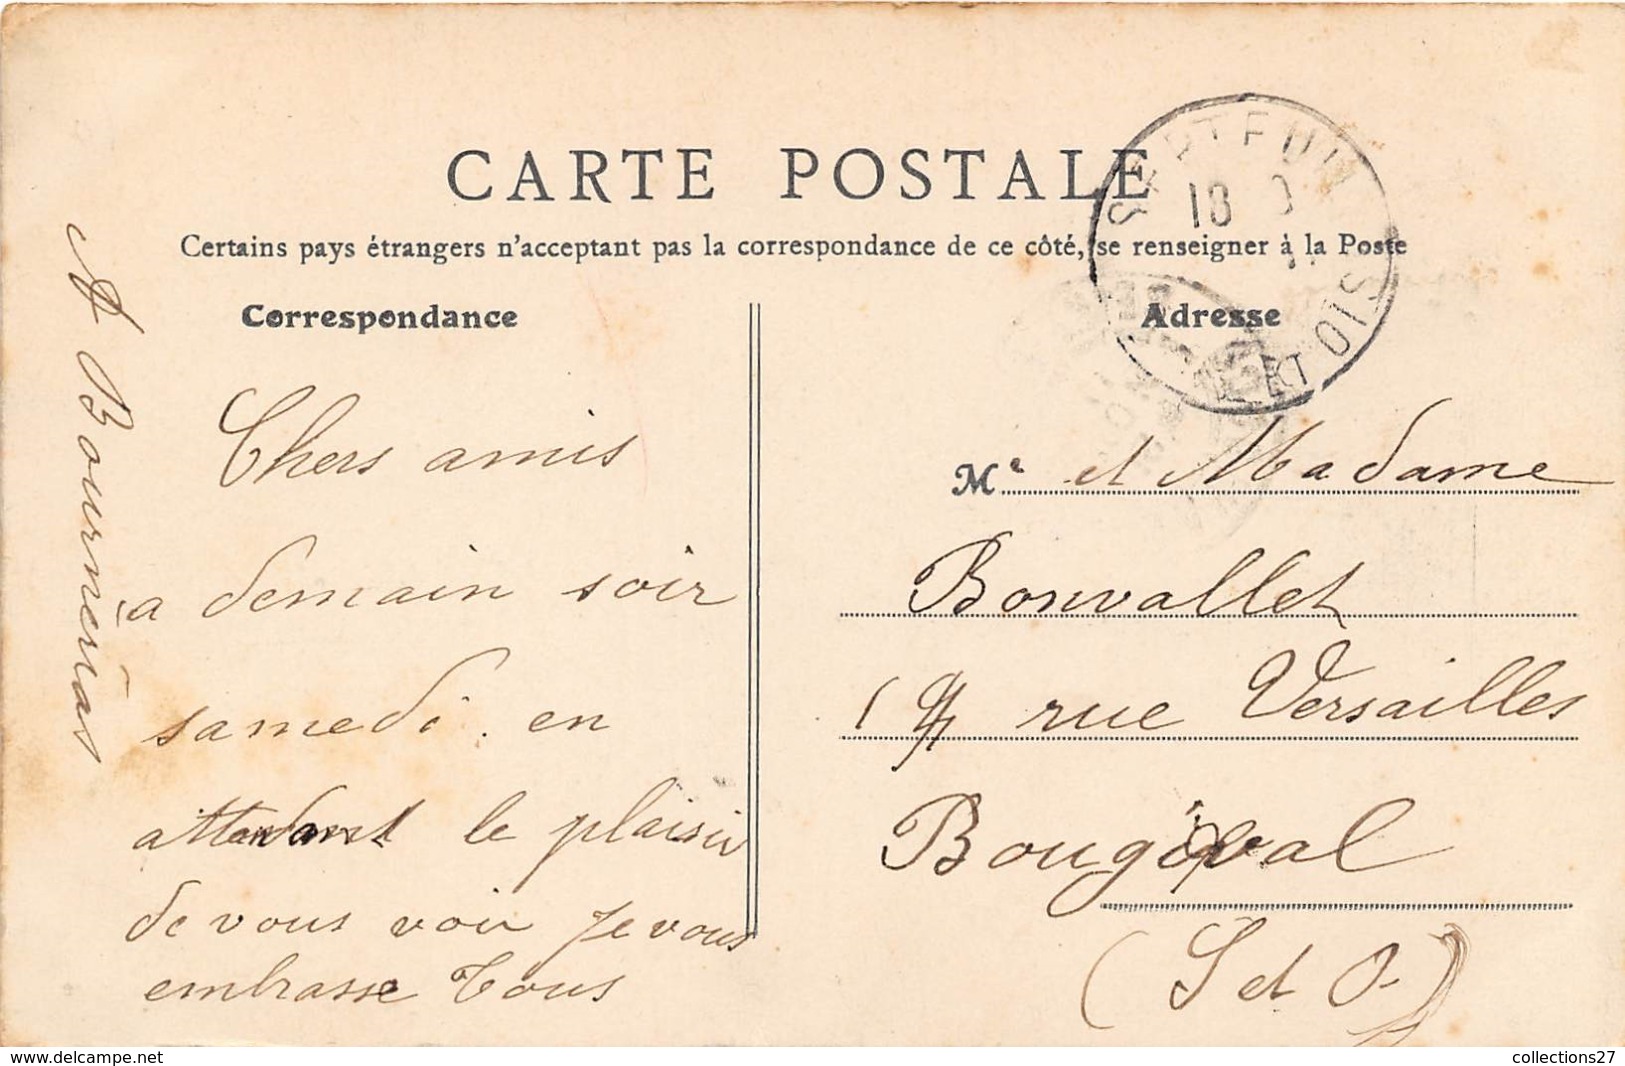 CARTE POSTALE
Certains pays étrangers n'acceptant pas la correspondance de ce côté, se renseigner à la Poste
Correspondance
Adresse
SEPTEUIL
18
S ET OISE
Chers amis
à demain soir
samedi. en
attendant le plaisir
de vous voir Je vous
embrasse Tous
M^e et Madame
Bonvallet
rue Versailles
Bougival
(S et O.)
www.delcampe.net
collections27